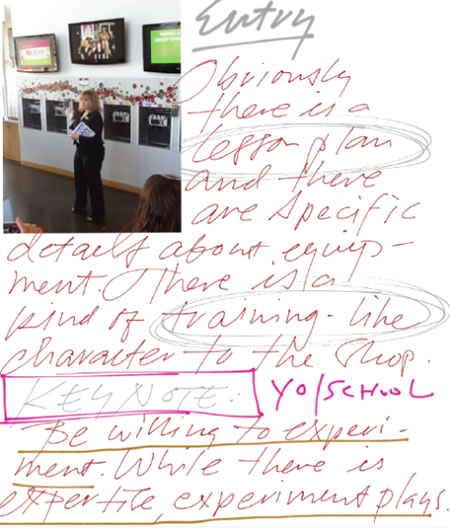 Entry
Obviously
there is a
lesson plan
and there
are specific
details about equip-
ment. There is a
kind of training-like
character to the shop.
KEYNOTE: YO/SCHOOL
Be willing to experi-
ment. While there is
expertise, experiment plays.